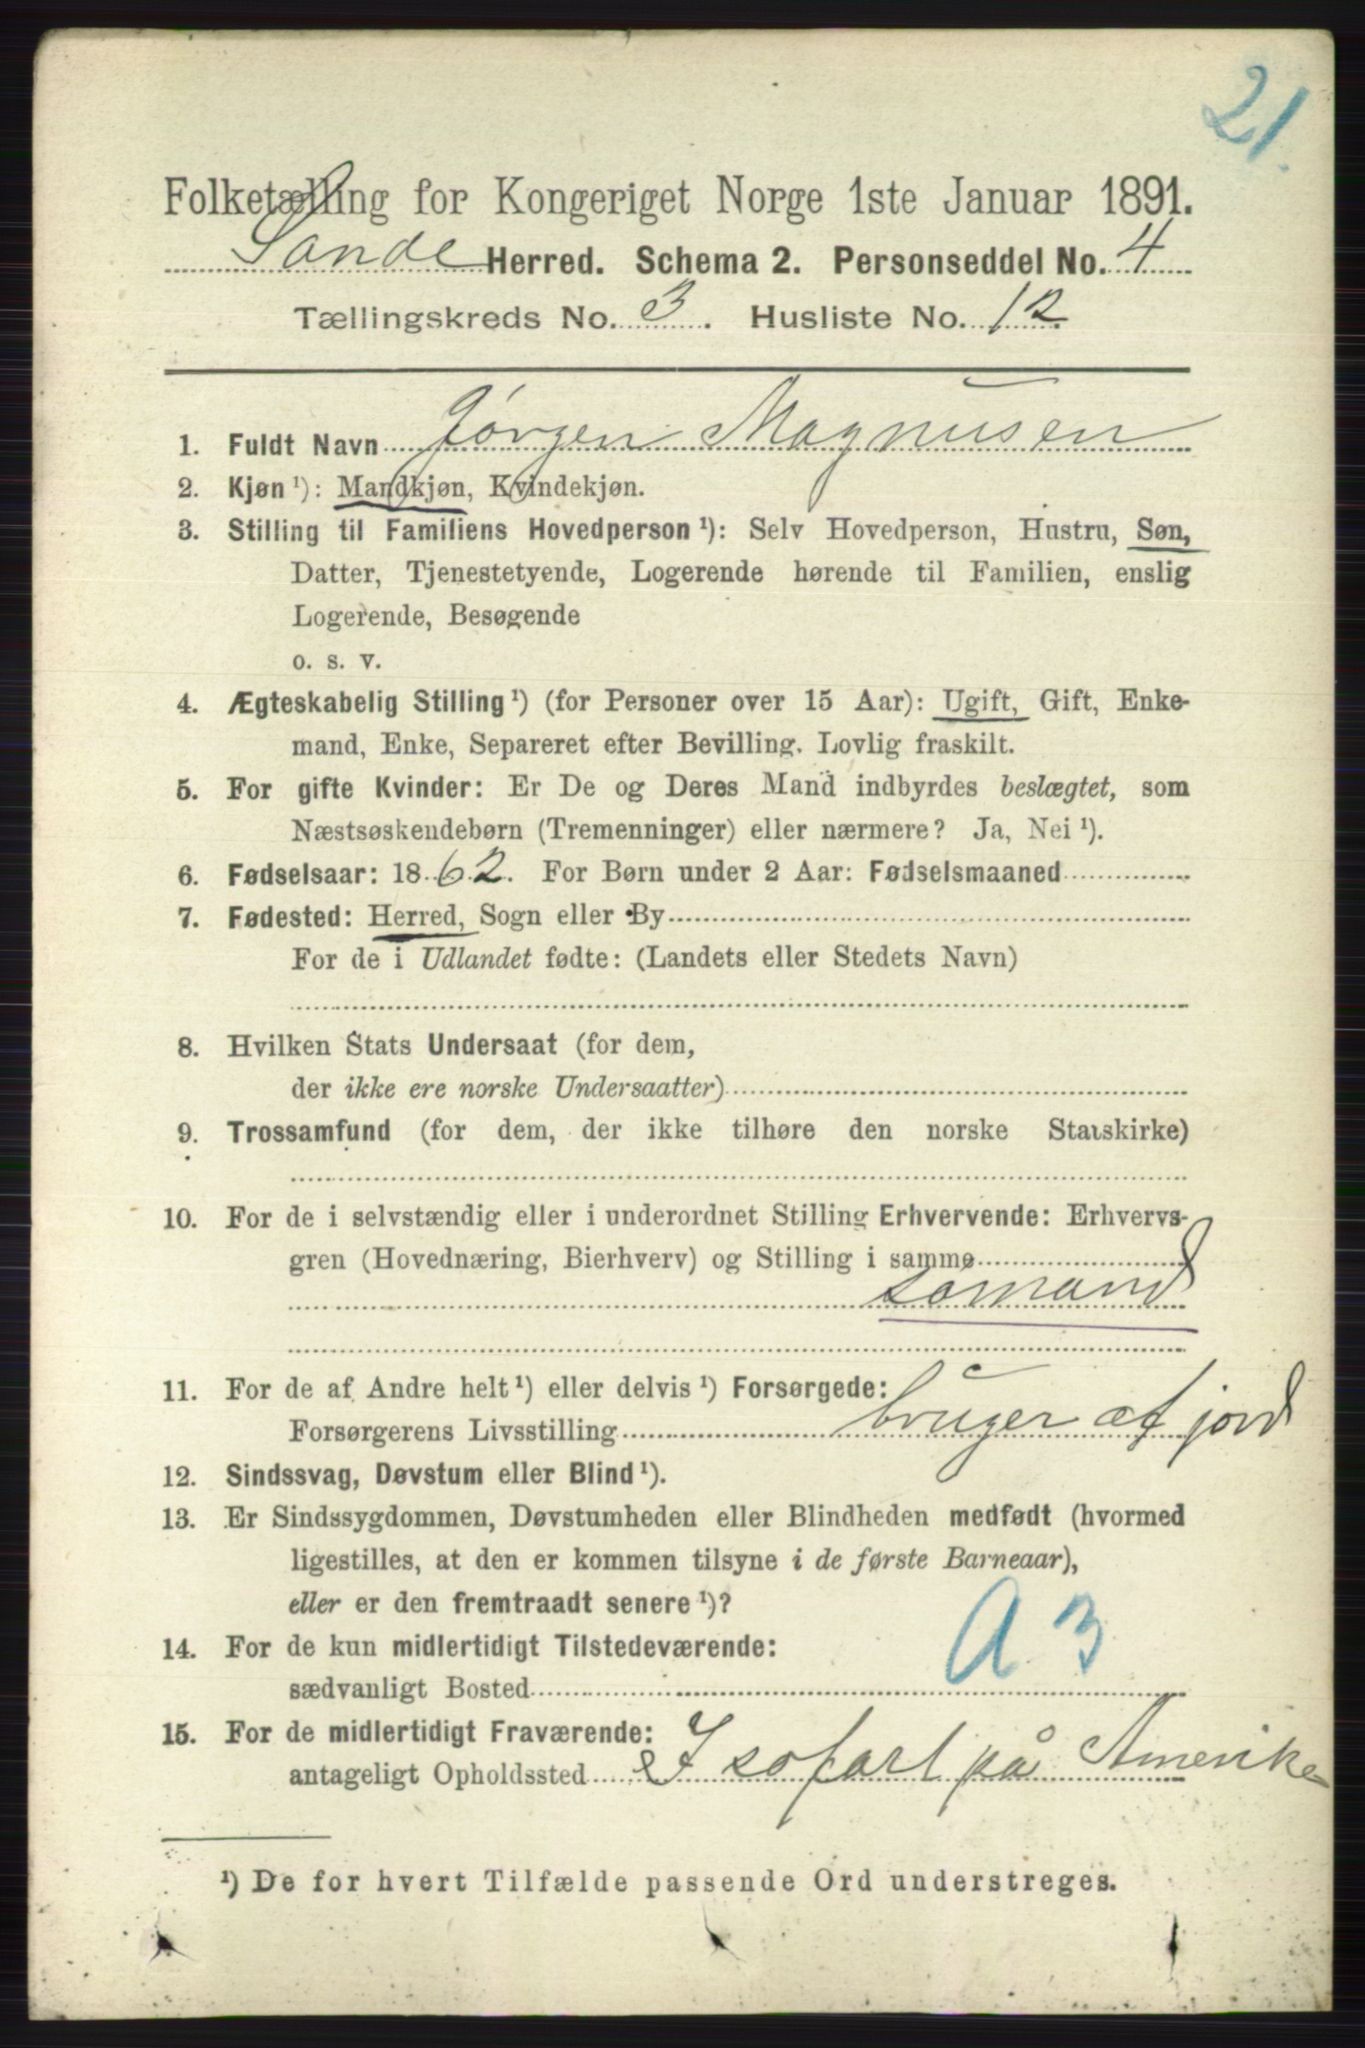 21.
Folketælling for Kongeriget Norge 1ste Januar 1891.
Sande Herred. Schema 2. Personseddel No. 4
Tællingskreds No. 3. Husliste No. 12.
1. Fuldt Navn Jørgen Magnusen
2. Kjøn ¹): Mandkjøn, Kvindekjøn.
3. Stilling til Familiens Hovedperson ¹): Selv Hovedperson, Hustru, Søn,
Datter, Tjenestetyende, Logerende hørende til Familien, enslig
Logerende, Besøgende
o. s. v.
4. Ægteskabelig Stilling ¹) (for Personer over 15 Aar): Ugift, Gift, Enke-
mand, Enke, Separeret efter Bevilling. Lovlig fraskilt.
5. For gifte Kvinder: Er De og Deres Mand indbyrdes beslægtet, som
Næstsøskendebørn (Tremenninger) eller nærmere? Ja, Nei ¹).
6. Fødselsaar: 1862. For Børn under 2 Aar: Fødselsmaaned
7. Fødested: Herred, Sogn eller By
For de i Udlandet fødte: (Landets eller Stedets Navn)
8. Hvilken Stats Undersaat (for dem,
der ikke ere norske Undersaatter)
9. Trossamfund (for dem, der ikke tilhøre den norske Statskirke)
10. For de i selvstændig eller i underordnet Stilling Erhvervende: Erhvervs-
gren (Hovednæring, Bierhverv) og Stilling i samme
sømand
11. For de af Andre helt ¹) eller delvis ¹) Forsørgede:
Forsørgerens Livsstilling bruger af jord
12. Sindssvag, Døvstum eller Blind ¹).
13. Er Sindssygdommen, Døvstumheden eller Blindheden medfødt (hvormed
ligestilles, at den er kommen tilsyne i de første Barneaar),
eller er den fremtraadt senere ¹)?
A 3
14. For de kun midlertidigt Tilstedeværende:
sædvanligt Bosted
15. For de midlertidigt Fraværende:
antageligt Opholdssted I søfart på Amerika
¹) De for hvert Tilfælde passende Ord understreges.